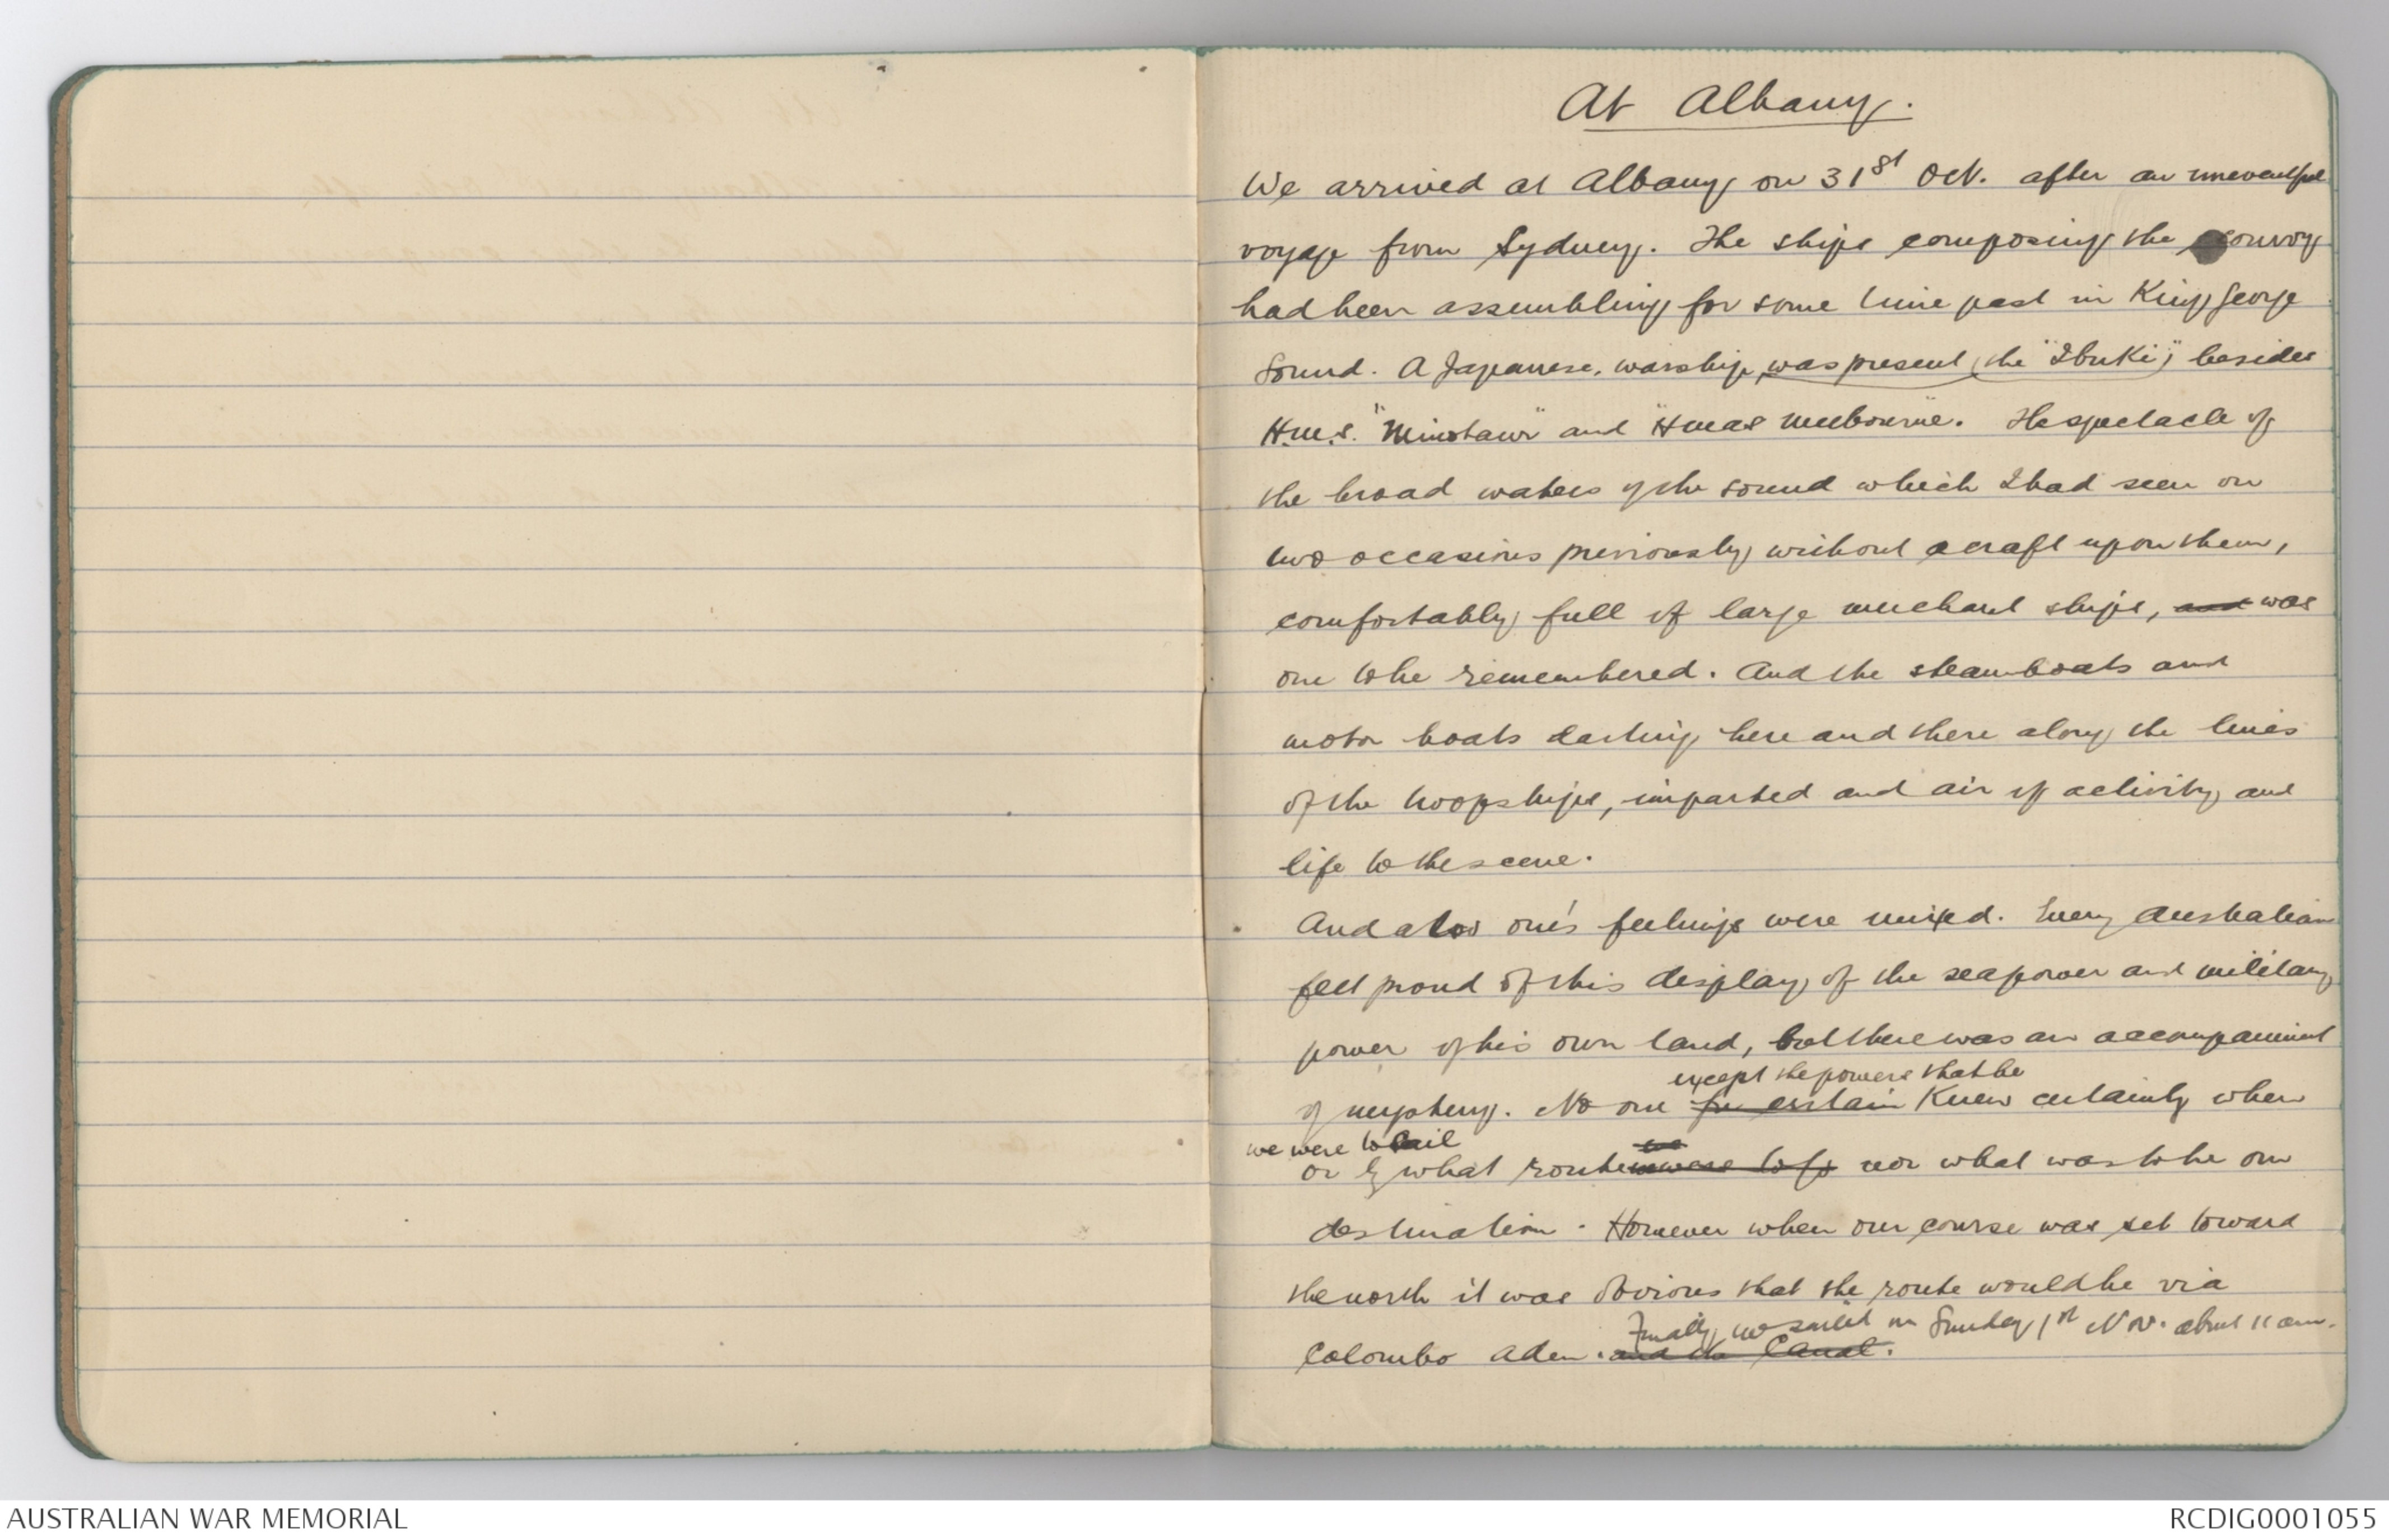 At Albany.
We arrived at Albany on 31st Oct. after an uneventful
voyage from Sydney. The ships composing the convoy
had been assembling for some time past in King George
Sound. A Japanese, warship, was present (the "Ibuki") besides
H.M.S. "Minotaur" and "HMAS Melbourne. The spectacle of
the broad waters of the sound which I had seen on
two occasions previously without a craft upon them,
comfortably full of large merchant ships, and was
one to be remembered. And the steamboats and
motor boats darting here and there along the lines
of the troopships, imparted and air of activity and
life to the scene.
And also one's feelings were mixed. Every Australian
felt proud of this display of the seapower and military
power of his own land, but there was an accompaniment
except the powers that be
of mystery. No one for certain knew certainly when
we were to sail
or by what route we were to go nor what was to be our
destination. However when our course was set toward
the north it was obvious that the route would be via
Finally we sailed on Sunday 1st Nov. about 11 am.
Colombo Aden. and the Canal.
AUSTRALIAN WAR MEMORIAL
RCDIG0001055